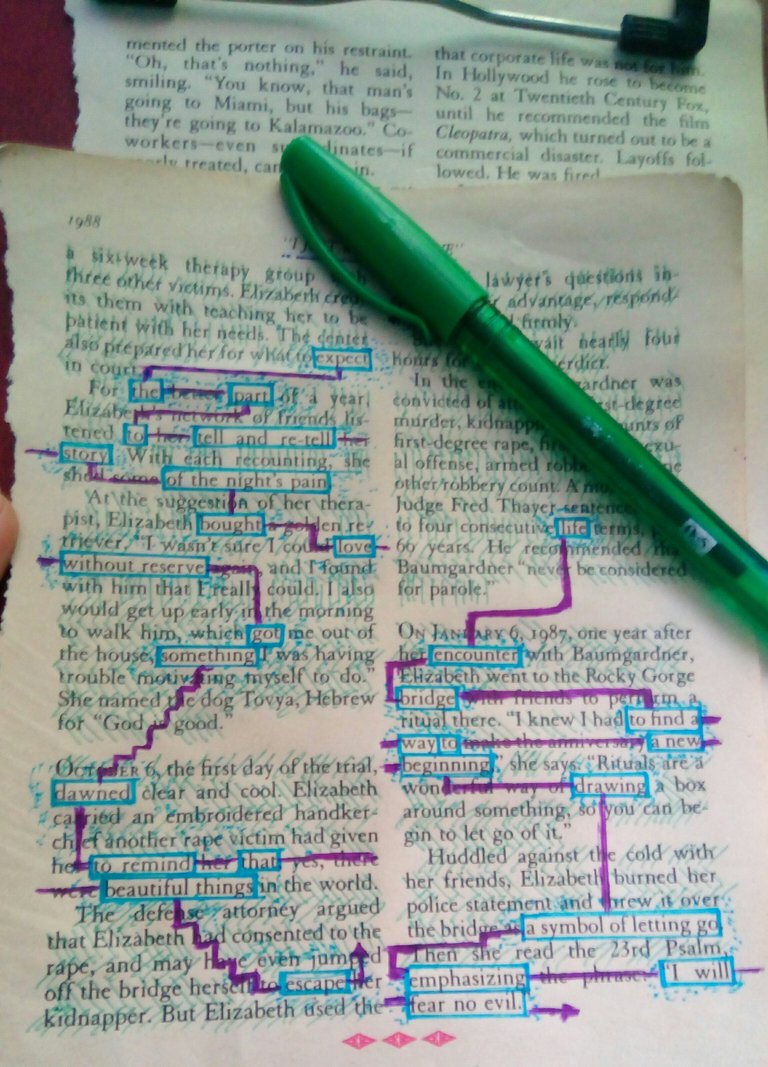 mented the porter on his restraint.
"Oh, that's nothing," he said,
smiling. "You know, that man's
going to Miami, but his bags—
they're going to Kalamazoo." Co-
workers—even dinates—if
treated,
that corporate life was not for him.
In Hollywood he rose to become
No. 2 at Twentieth Century Fox,
until he recommended the film
Cleopatra, which turned out to be a
commercial disaster. Layoffs fol-
lowed. He was fired
1988
a six-week therapy group
three other victims. Elizabeth
its them with teaching her to be
patient with her needs. The center
also prepared her for what to expect
in court.
For the better part of a year,
Elizabeth's network of friends lis-
tened to her tell and re-tell her
story. With each recounting, she
shed some of the night's pain
At the suggestion of her thera-
pist, Elizabeth bought a golden re-
triever. "I wasn't sure I could love
without reserve again, and I found
with him that I really could. I also
would get up early in the morning
to walk him, which got me out of
the house, something I was having
trouble motivating myself to do."
She named the dog Tovya, Hebrew
for "God is good."
October 6, the first day of the trial,
dawned clear and cool. Elizabeth
carried an embroidered handker-
chief another rape victim had given
her to remind her that yes, there
were beautiful things in the world.
The defense attorney argued
that Elizabeth had consented to the
rape, and may have even jumped
off the bridge herself to escape her
kidnapper. But Elizabeth used the
lawyer's questions in-
advantage, respond-
firmly.
wait nearly four
hours for verdict.
In the ardner was
convicted of st-degree
murder, kidnapp unts of
first-degree rape,
al offense, armed
other robbery count.
Judge Fred Thayer sentence
to four consecutive life terms,
60 years. He recommended
Baumgardner "never be considered
for parole."
On January 6, 1987, one year after
her encounter with Baumgardner,
Elizabeth went to the Rocky Gorge
bridge with friends to perform a
ritual there. "I knew I had to find a
way to make the anniversary a new
beginning," she says. "Rituals are a
wonderful way of drawing a box
around something, so you can be-
gin to let go of it."
Huddled against the cold with
her friends, Elizabeth burned her
police statement and threw it over
the bridge as a symbol of letting go.
Then she read the 23rd Psalm,
emphasizing the phrase: "I will
fear no evil.